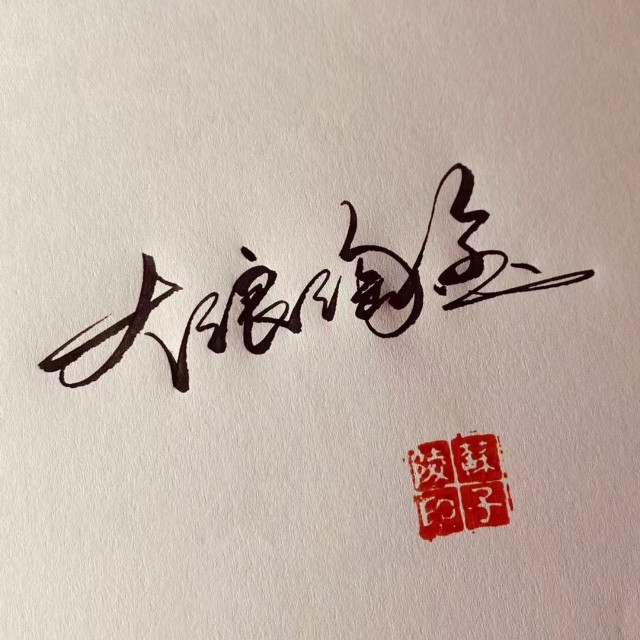 大浪淘金
蘇子
陵印